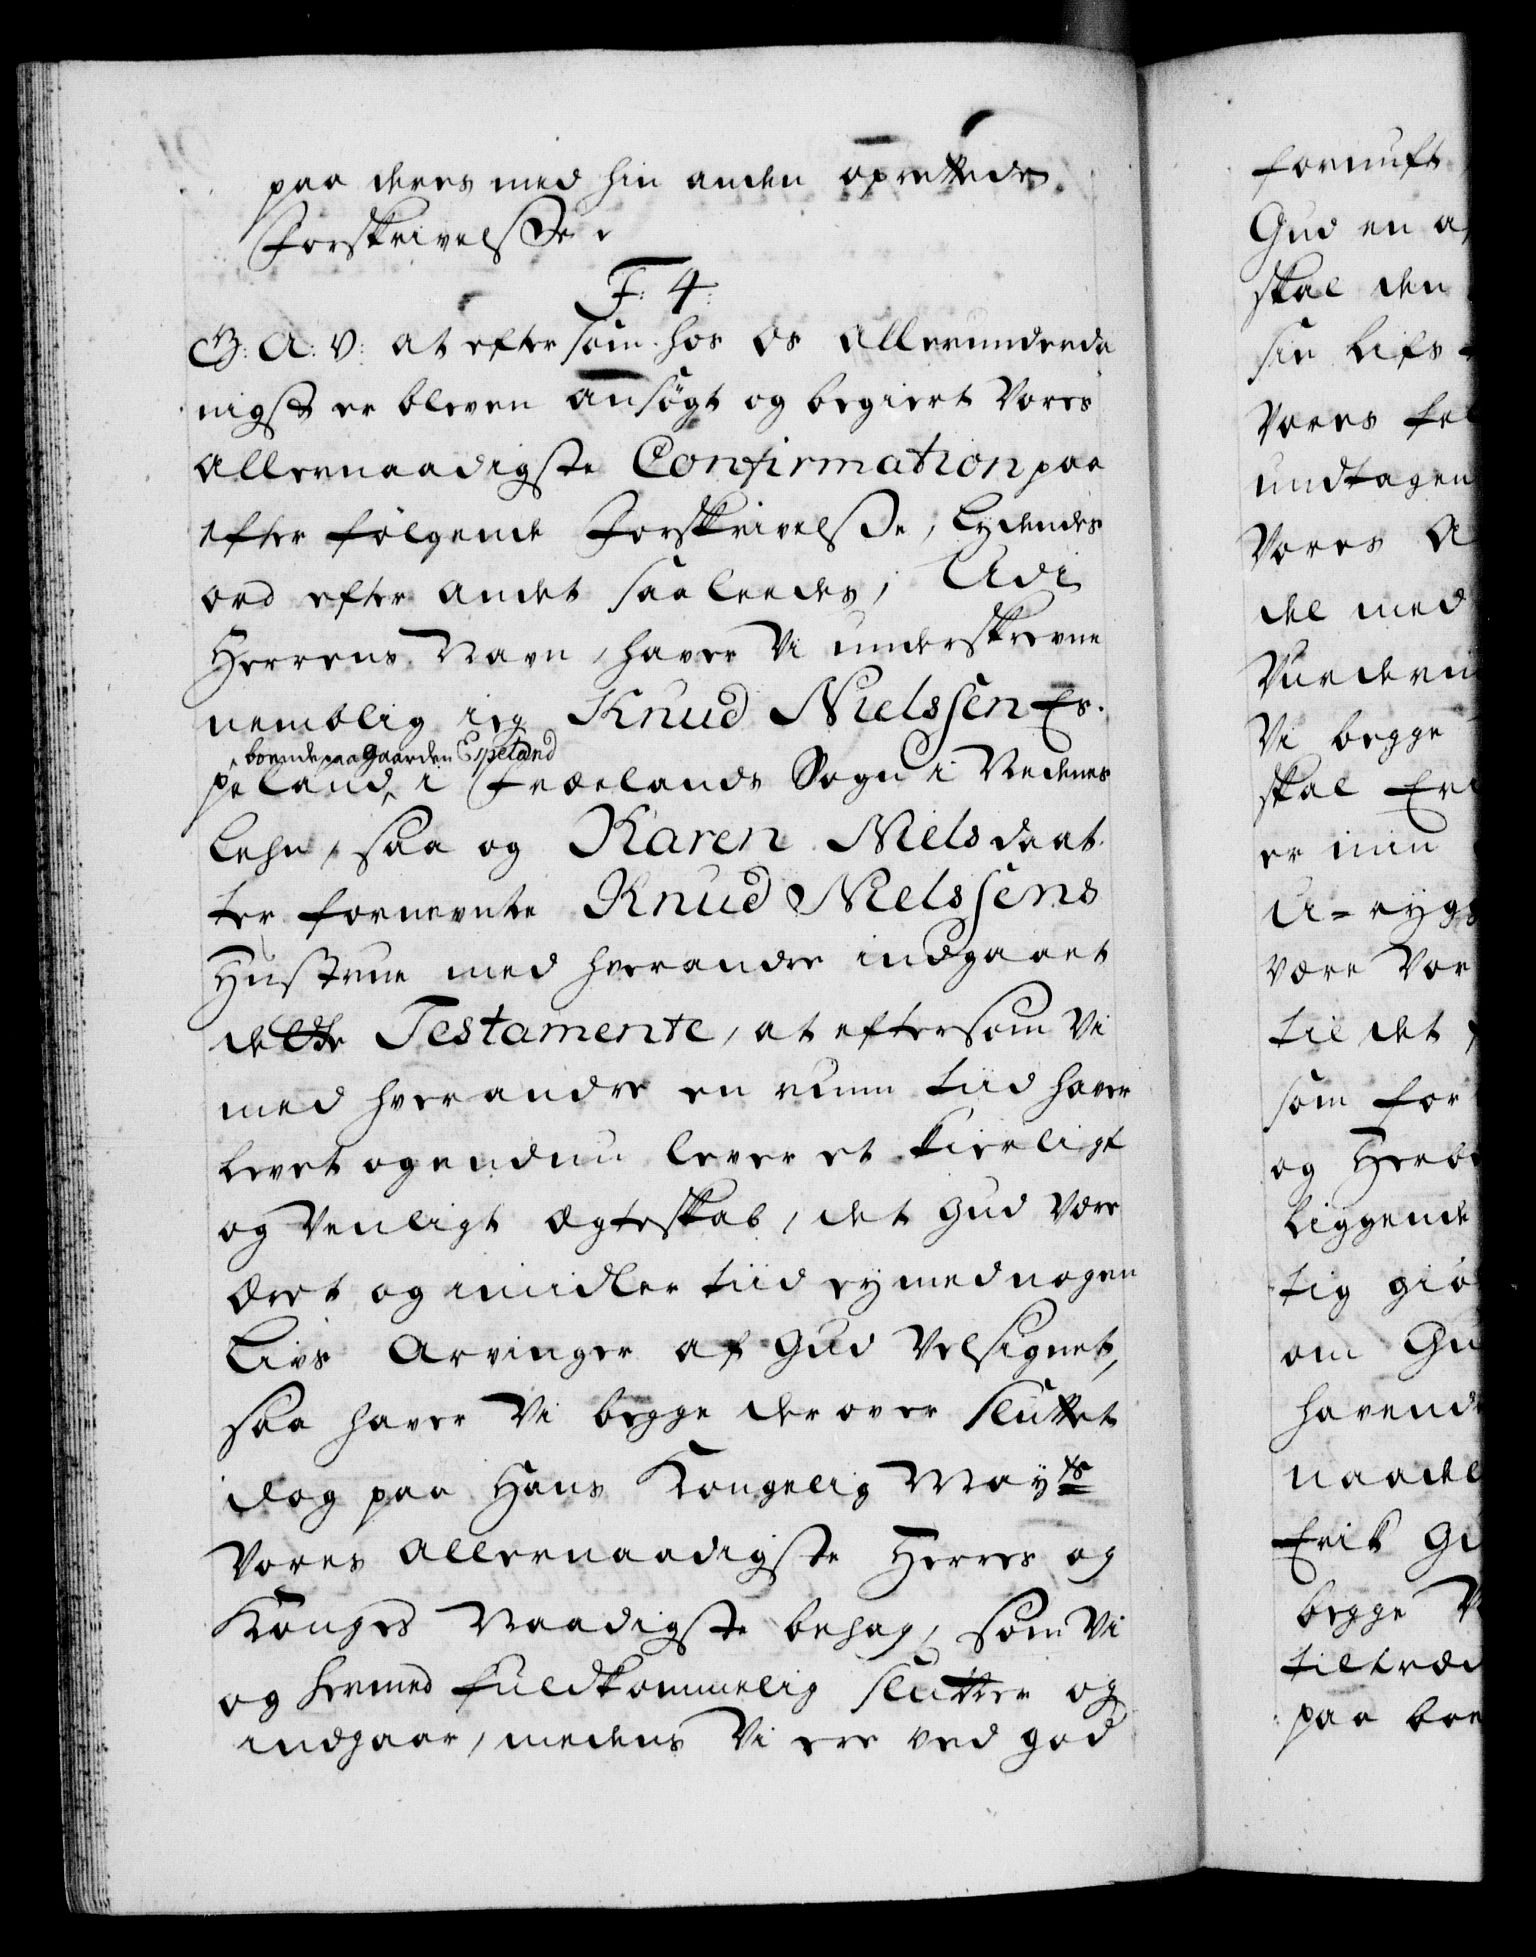 paa deres med hin anden oprettede
Forskrivelsse.
F: 4:
G: A: V: at efter som hos Os allerunderda
nigst er bleven ansøgt og begiert Vores
allernaadigste Confirmation paa
efter følgende Forskrivelsse, lydendes
ord efter andet saaledes, Udi
Herrens Navn, haver Vi underskrevne
nemblig ieg Knud Nielssen Es-
boende paa Gaarden Espeland
peland, i Froelands Sogn i Nedenes
Lehn, saa og Karen Niels daat-
ter fornevnte Knud Nielssens
Hustrue med hverandre indgaaet
dette Testamente, at eftersom Vi
med hverandre en rum tiid haver
levet og endnu lever et kierligt
og Venligt Ægteskab, det Gud være
æret og imidler tiid ey med nogen
Livs Arvinger af Gud Velsignet,
saa haver Vi begge derover sluttet
dog paa Hans Kongelig Mayts
Vores allernaadigste Herres og
Konges Naadigste behag, som Vi
og hermed fuldkommelig slutter og
indgaar, medens Vi ere ved god
fornuft
Gud en a
skal den
sin Lifs
Vores fel
undtagen
Vores A
del med
Vurderin
Vi begge
skal Eri
er min
U-ryg
være Vor
til det
som for
og Herbe
liggende
tig giø
om Gu
havend
naadel
Erik G
begge V
tiltræd
paa boe